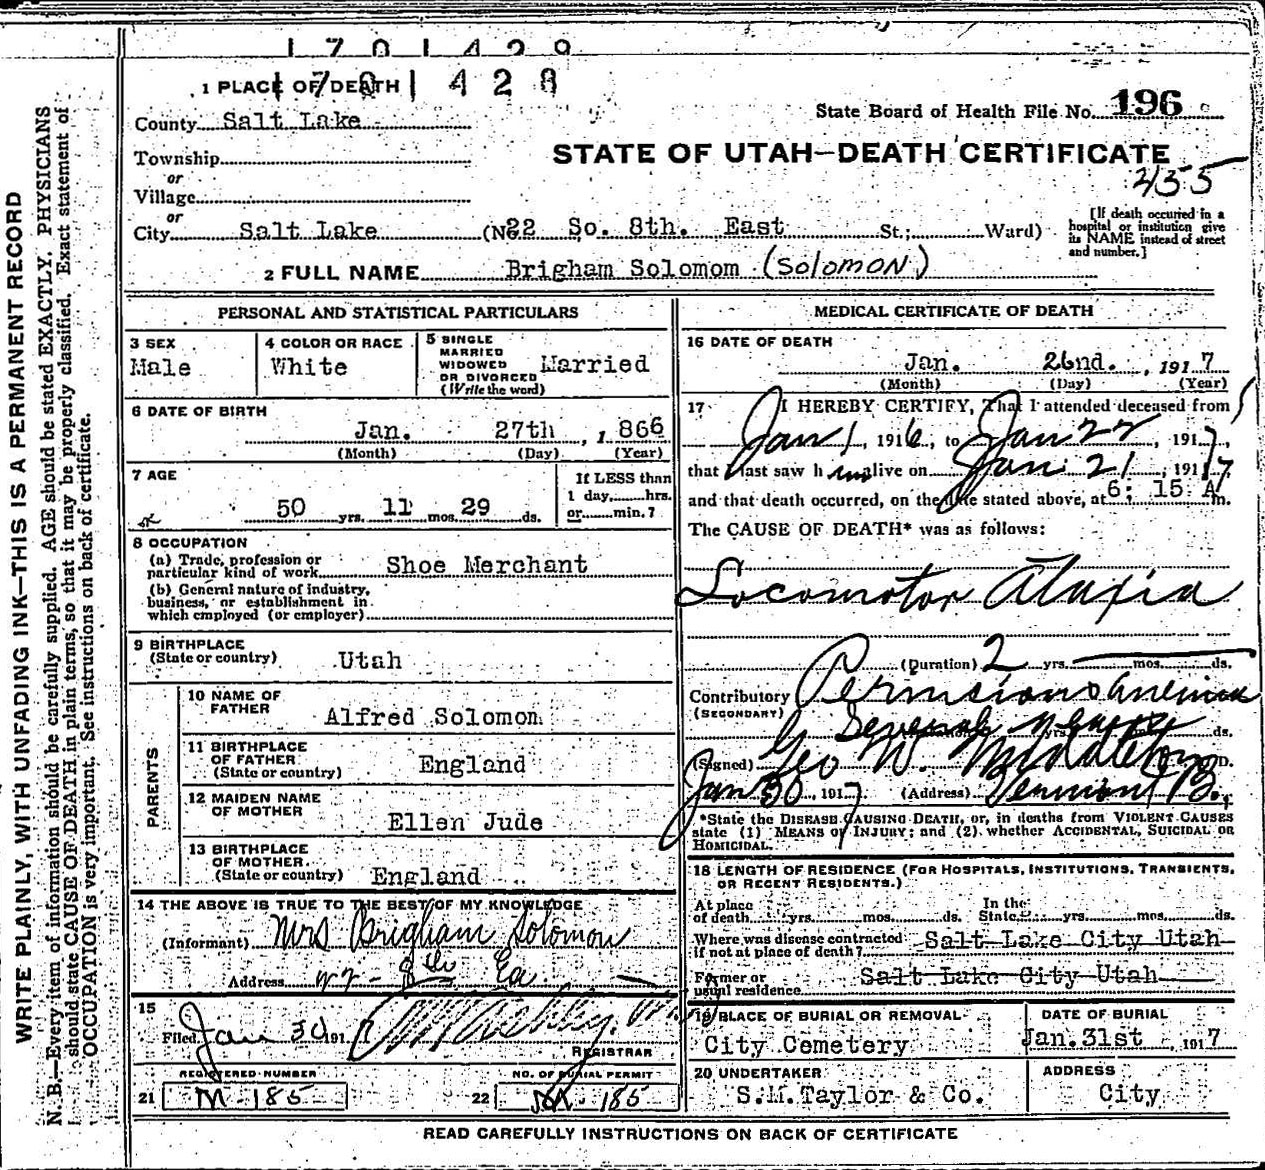 1701429
1701428
1 PLACE OF DEATH
State Board of Health File No. 196
County Salt Lake
STATE OF UTAH—DEATH CERTIFICATE
Township
455
or
Village
or
City Salt Lake (No 22 So. 8th. East St.; Ward)
[If death occurred in a
hospital or institution give
its NAME instead of street
and number.]
2 FULL NAME Brigham Solomom (SOLOMON)
PERSONAL AND STATISTICAL PARTICULARS
3 SEX
Male
4 COLOR OR RACE
White
5 SINGLE
MARRIED
WIDOWED
OR DIVORCED
(Write the word)
Married
6 DATE OF BIRTH
Jan. 27th, 1866
(Month) (Day) (Year)
7 AGE
50 yrs. 11 mos. 29 ds.
If LESS than
1 day,......hrs.
or......min.?
8 OCCUPATION
(a) Trade, profession or
particular kind of work Shoe Merchant
(b) General nature of industry,
business, or establishment in
which employed (or employer)
9 BIRTHPLACE
(State or country) Utah
PARENTS
10 NAME OF
FATHER Alfred Solomon
11 BIRTHPLACE
OF FATHER
(State or country) England
12 MAIDEN NAME
OF MOTHER Ellen Jude
13 BIRTHPLACE
OF MOTHER
(State or country) England
14 THE ABOVE IS TRUE TO THE BEST OF MY KNOWLEDGE
(Informant) Mrs Brigham Solomon
Address 22 - 8th Ea
15
Filed Jan 30 1917
REGISTRAR
REGISTERED NUMBER
21 M-185
NO. OF BURIAL PERMIT
22 M-185
MEDICAL CERTIFICATE OF DEATH
16 DATE OF DEATH
Jan. 26nd., 1917
(Month) (Day) (Year)
17 I HEREBY CERTIFY, That I attended deceased from
Jan 1, 1916, to Jan 22, 1917,
that I last saw him alive on Jan. 21, 1917
and that death occurred, on the date stated above, at 6: 15 A m.
The CAUSE OF DEATH* was as follows:
Locomotor Ataxia
(Duration) 2 yrs. mos. ds.
Contributory Pernicious Anemia
(SECONDARY)
Several years ds.
(Signed) Geo W. Middleton M.D.
Jan 30, 1917 (Address)
*State the DISEASE CAUSING DEATH, or, in deaths from VIOLENT CAUSES
state (1) MEANS OF INJURY; and (2) whether ACCIDENTAL, SUICIDAL OR
HOMICIDAL.
18 LENGTH OF RESIDENCE (FOR HOSPITALS, INSTITUTIONS, TRANSIENTS,
OR RECENT RESIDENTS.)
At place
of death yrs. mos. ds.
In the
State yrs. mos. ds.
Where was disease contracted
if not at place of death? Salt Lake City Utah
Former or
usual residence Salt Lake City Utah
19 PLACE OF BURIAL OR REMOVAL
City Cemetery
DATE OF BURIAL
Jan. 31st, 1917
20 UNDERTAKER
S.M. Taylor & Co.
ADDRESS
City
READ CAREFULLY INSTRUCTIONS ON BACK OF CERTIFICATE
WRITE PLAINLY, WITH UNFADING INK—THIS IS A PERMANENT RECORD
N. B.—Every item of information should be carefully supplied. AGE should be stated EXACTLY. PHYSICIANS
should state CAUSE OF DEATH in plain terms, so that it may be properly classified. Exact statement of
OCCUPATION is very important. See instructions on back of certificate.